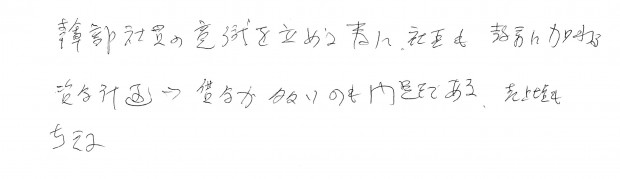 幹部社員の意識を立める為に、社長も教育に加わる
資金計画→借金が多いのも問題である、売上増も
考える